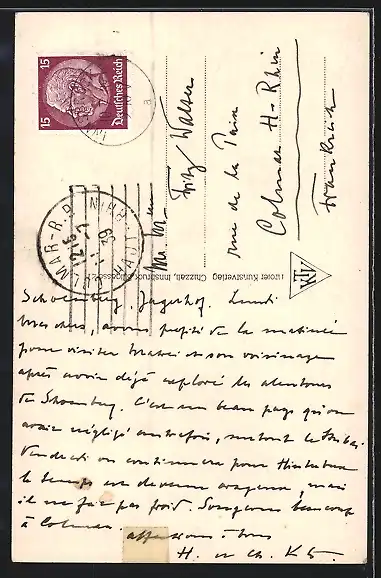 15 Deutsches Reich 15
COLMAR-R.P. HAUT-RHIN
12 15
39
Fritz Walter
rue de la Paix
Colmar H-Rhin
Frankreich
Tiroler Kunstverlag Chizzali, Innsbruck
TKV
Schoenberg, Jägerhof. Lundi
avons profité de la matinée
pour visiter et son voisinage
après avoir déjà exploré les alentours
de Schoenberg. C'est un beau pays qu'on
avait négligé autrefois, surtout le
on continuera pour
le temps est devenu orageux, mais
il ne fait pas froid. Songeons beaucoup
à Colmar. affectueux à tous
H. et Ch. K